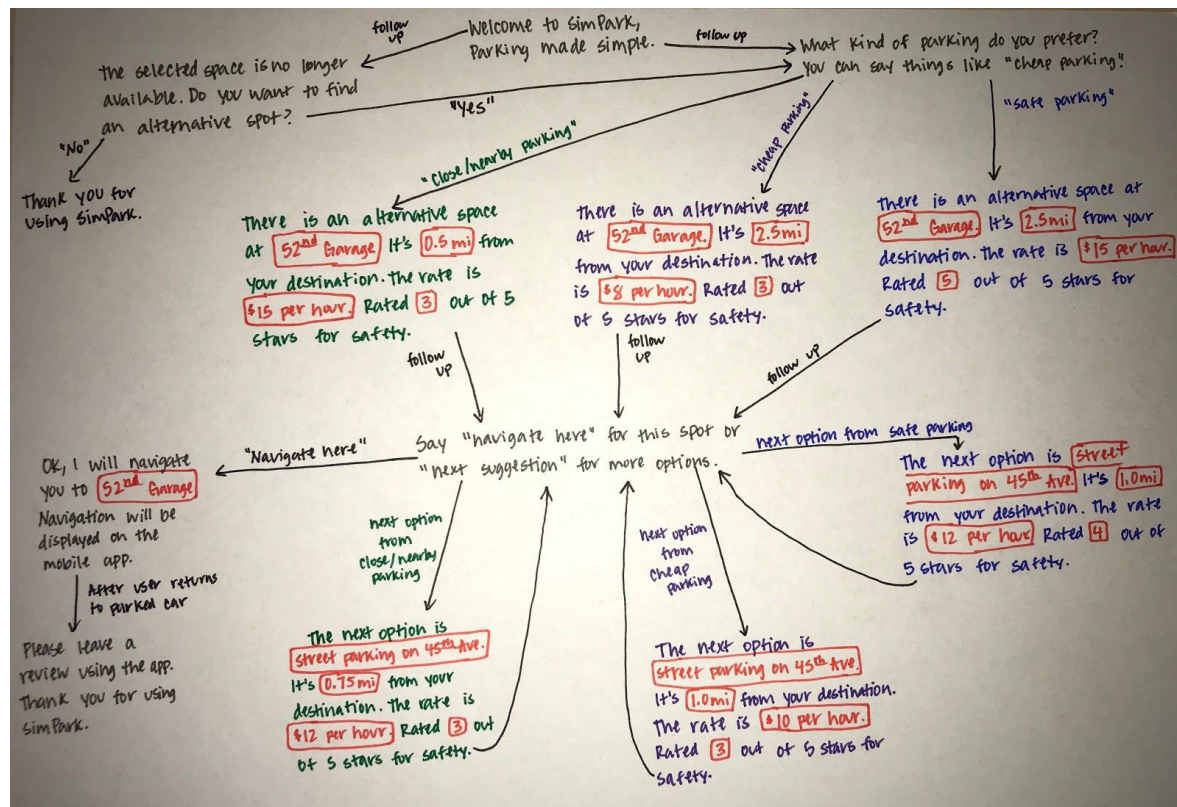 Welcome to SimPark,
Parking made simple.
follow
up
follow up
The selected space is no longer
available. Do you want to find
an alternative spot?
"Yes"
"No"
Thank you for
using SimPark.
What kind of parking do you prefer?
You can say things like "cheap parking".
"Close/nearby parking"
"cheap parking"
"safe parking"
There is an alternative space
at 52nd Garage. It's 0.5 mi from
your destination. The rate is
$15 per hour. Rated 3 out of 5
stars for safety.
There is an alternative space
at 52nd Garage. It's 2.5mi
from your destination. The rate
is $8 per hour. Rated 3 out
of 5 stars for safety.
There is an alternative space at
52nd Garage. It's 2.5mi from your
destination. The rate is $15 per hour.
Rated 5 out of 5 stars for
safety.
follow
up
follow
up
follow up
Say "navigate here" for this spot or
"next suggestion" for more options.
"Navigate here"
OK, I will navigate
you to 52nd Garage
Navigation will be
displayed on the
mobile app.
After user returns
to parked car
Please leave a
review using the app.
Thank you for using
SimPark.
next option
from
close/nearby
parking
The next option is
street parking on 45th Ave.
It's 0.75mi from your
destination. The rate is
$12 per hour. Rated 3 out
of 5 stars for safety.
next option
from
cheap
parking
The next option is
street parking on 45th Ave.
It's 1.0mi from your destination.
The rate is $10 per hour.
Rated 3 out of 5 stars for
safety.
next option from safe parking
The next option is street
parking on 45th Ave. It's 1.0mi
from your destination. The rate
is $12 per hour Rated 4 out of
5 stars for safety.